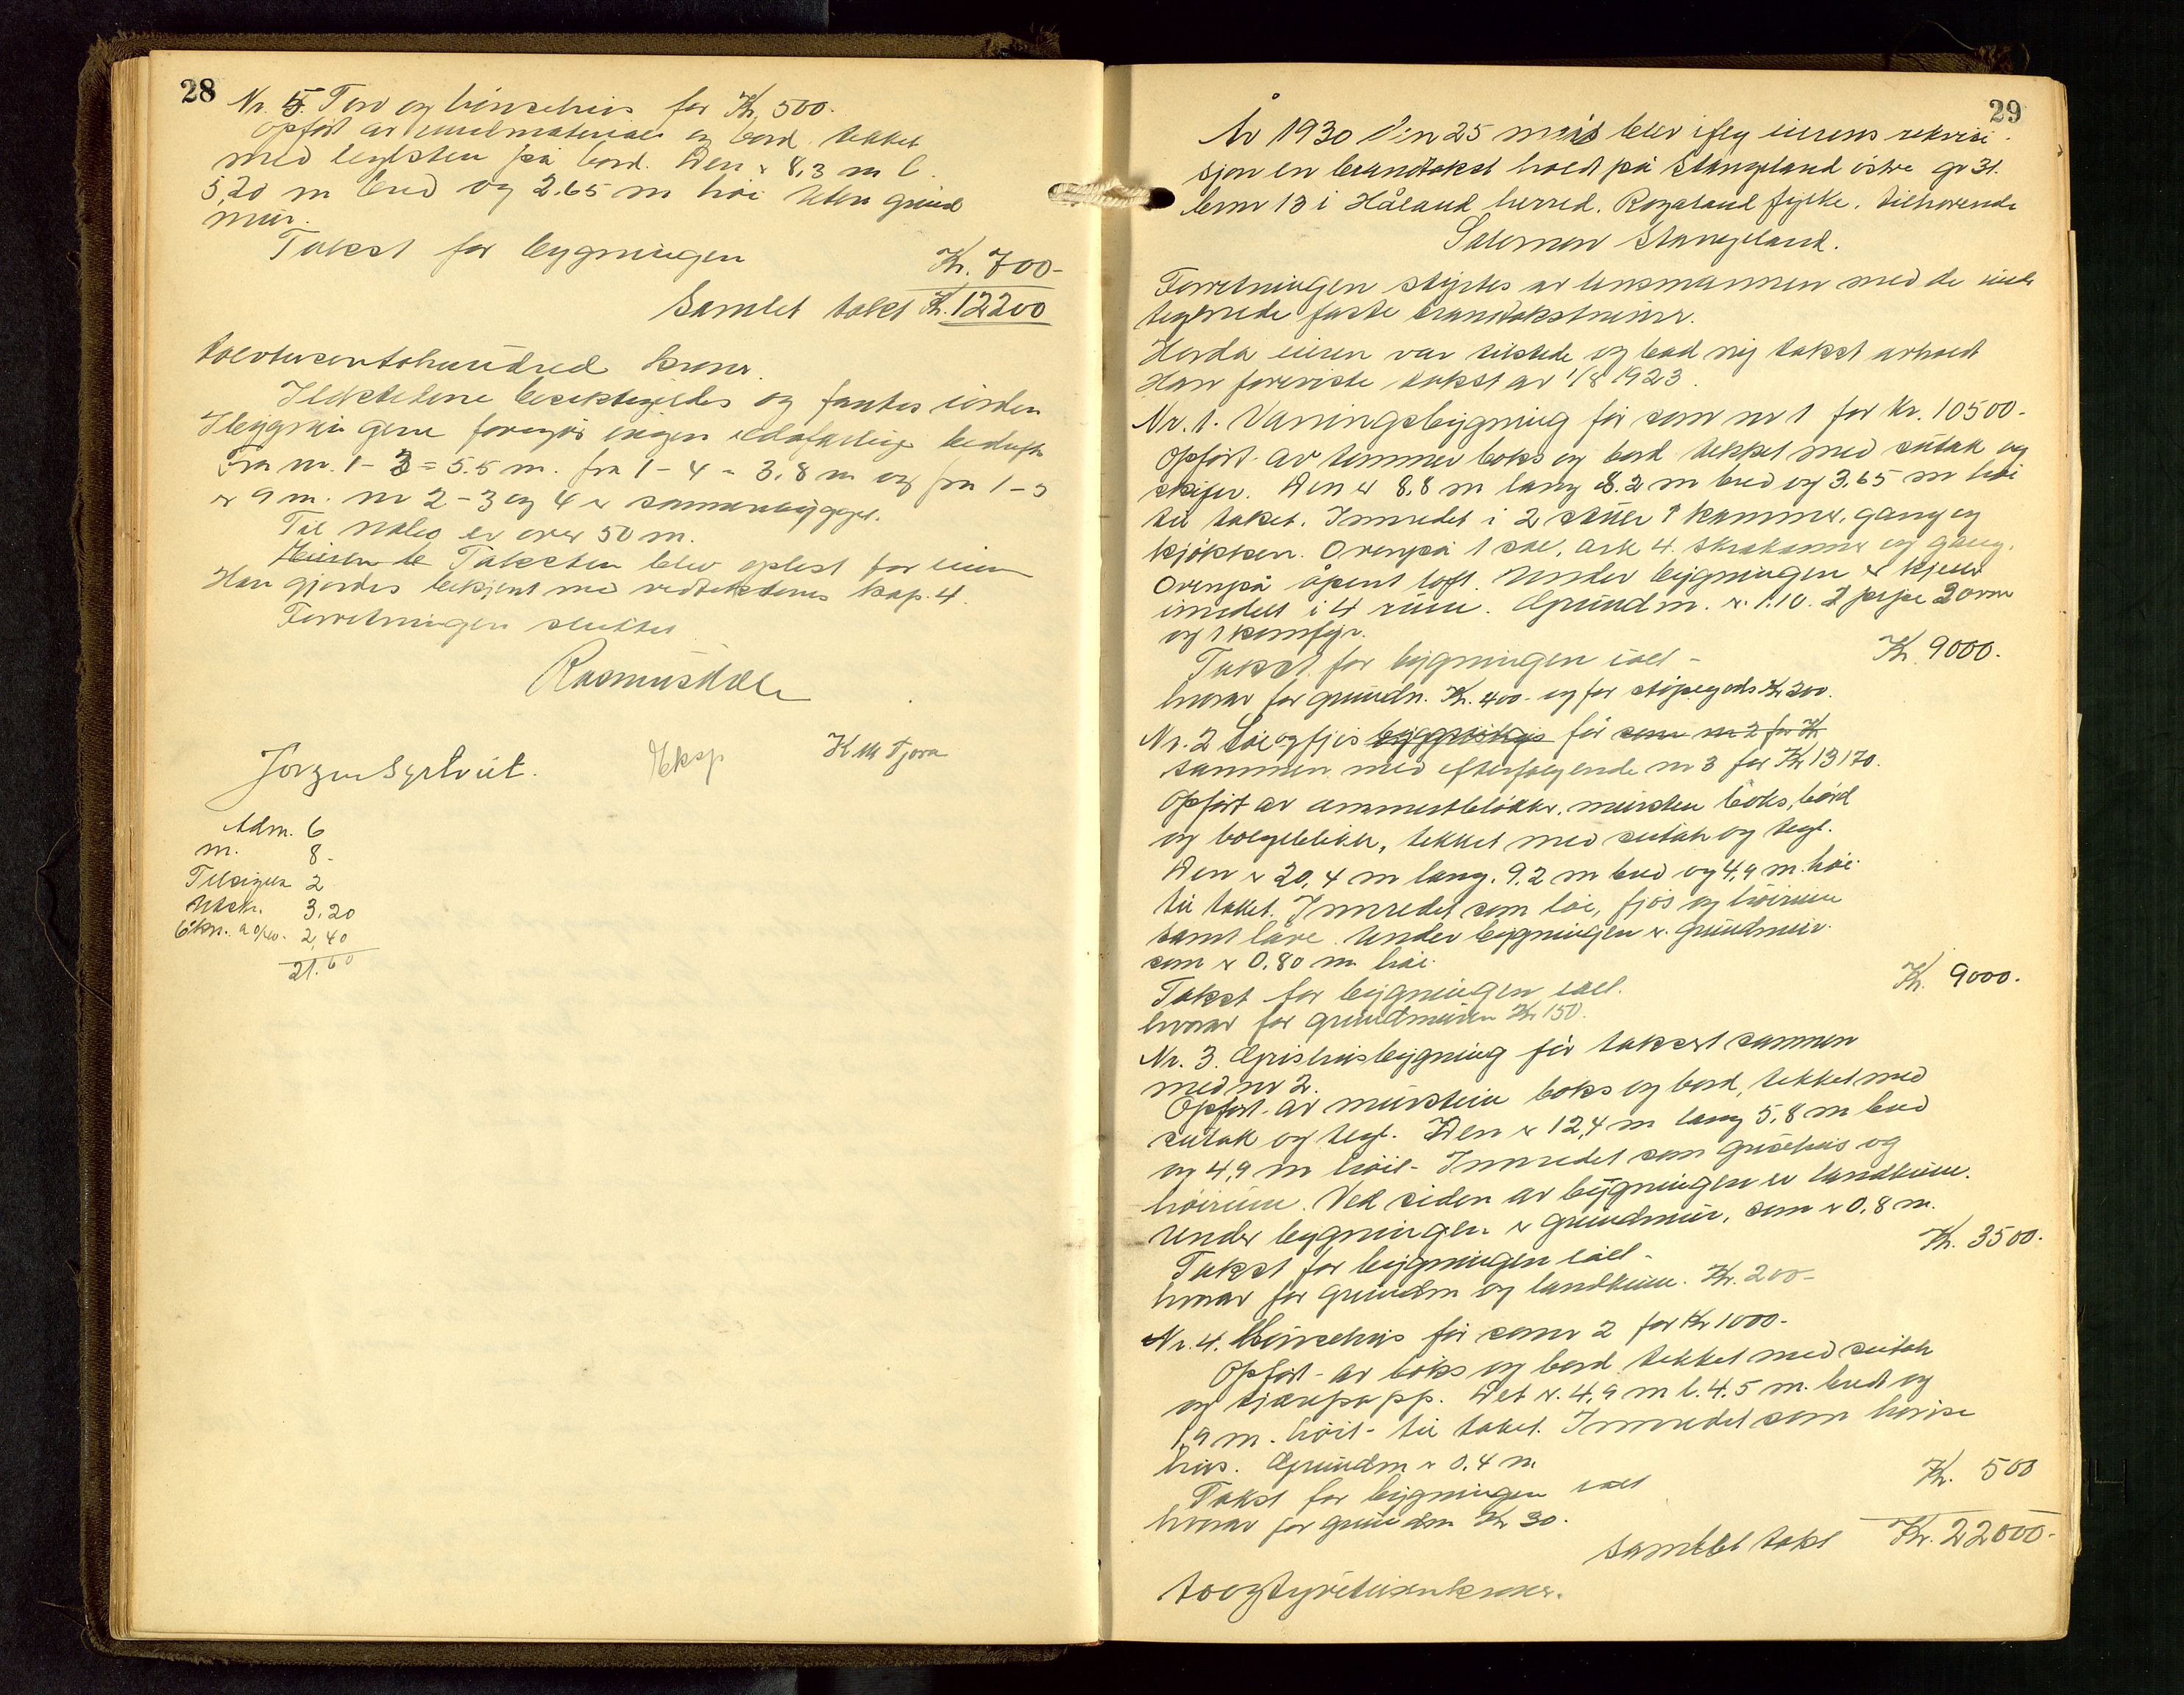 28
Nr. 5. Torv og hönsehus før Kr. 500.
Opfört av murmateriale og bord tekket
med teglsten på bord. Den er 8,3 m l.
5,20 m bred og 2.65 m höi uten grund
mur.
Takst for bygningen Kr. 700-
Samlet takst Kr. 12200
tolvtusentohundred kroner.
Ildstedene besiktigedes og fantes iorden
I bygningene foregår ingen ildsfarlig bedrift
Fra nr. 1 - 3 = 5.5 m. fra 1 - 4 = 3,8 m og fra 1-5
er 9 m. nr 2-3 og 4 er sammenbygget.
Til nabo er over 50 m.
Eieren ble Taksten blev oplest for eieren
Han gjordes bekjent med vedtektenes kap. 4.
Forretningen sluttet
Rasmus
Jörgen
Eksp
K M Tjora
Adm. 6
m. 8-
Tilsigelse 2
Utskr. 3.20
6 km. a 0/40. 2,40
21.60
29
År 1930 den 25 mais blev ifølg eierens rekvisi-
sjon en branntakst holdt på Stangeland östre gr 31.
brnr 13 i Håland herred. Rogaland fylke. tilhørende
Salomon Stangeland.
Forretningen styrtes av lensmannen med de under
tegnede faste branntakstmenn.
Herda eieren var tilstede og bad ny takst avholdt
Han foreviste takst av 1/8 1923.
Nr. 1. Vaningsbygning før som nr 1 for Kr. 10500-
Opfört av tømmer boks og bord tekket med sutak og
skifer. Den er 8,8 m lang 8.2 m bred og 3,65 m höi
til taket. Innredet i 2 stuer 1 kammer, gang og
kjökken. Ovenpå 1 sal, ark 4. skrakamre og gang.
Ovenpå åpent loft. Under bygningen er kjeller
inredet i 4 rum. Grundm. er 1.10. 2 piper 2 ovne
og 1 komfyr.
Takst for bygningen ialt - Kr. 9000.
hvorav for grundm. Kr. 400- og for støpegods Kr 200.
Nr. 2 Löe og fjös bygning før som nr 2 for Kr
sammen med efterfølgende nr 3 for Kr 13170.
Opfört av cementblökker, mursten boks, bord
og bolgeblikk, tekket med sutak og tegl.
Den er 20,4 m lang. 9.2 m bred og 4,9 m. höi
til taket. Innredet som löe, fjös og höirum
samt låve. Under bygningen er grundmur
som er 0,80 m höi.
Takst for bygningen ialt. Kr. 9000.
hvorav for grundmuren Kr 150.
Nr. 3. Grishusbygning før taksert sammen
med nr 2.
Opfört av murstein boks og bord, tekket med
sutak og tegl. Den er 12,4 m lang 5,8 m bred
og 4,9 m höit - Innredet som grisehus og
höirum. Ved siden av bygningen er landkum.
Under bygningen er grundmur, som er 0,8 m.
Takst for bygningen ialt - Kr. 3500.
hvorav for grundm og landkum. Kr. 200-
Nr. 4. Hönsehus før som 2 for Kr 1000-
Opfört - av boks og bord tekket med sutak
og tjærepapp. Det er. 4,9 m l. 4.5 m. bredt og
1,9 m. höit - til taket. Innredet som hönse
hus. Grundm er 0,4 m
Takst for bygningen ialt Kr. 500
hvorav for grundm Kr 30.
samlet takst Kr. 22000-
toogtyvetusenkroner.